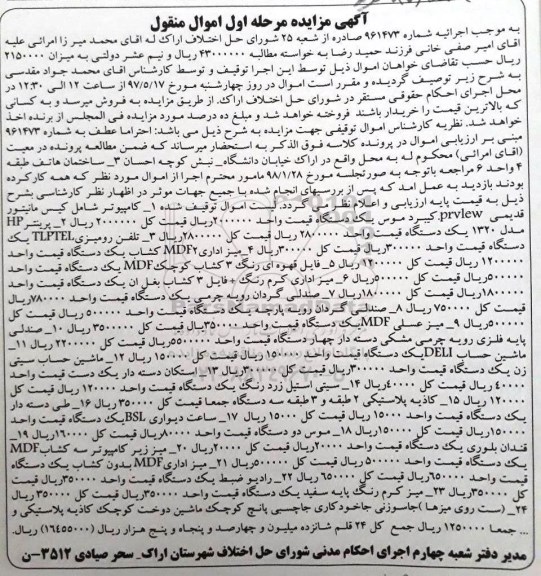 آگهی مزایده مرحله اول اموال منقول
به موجب اجرائیه شماره ۹۶۱۴۷۳ صادره از شعبه ۲۵ شورای حل اختلاف اراک له اقای محمد میر زا امرائی علیه
اقای امیر صفی خانی فرزند حمید رضا به خواسته مطالبه ۴۳۰۰۰۰۰۰ ریال و نیم عشر دولتی به میزان ۲۱۵۰۰۰۰
ریال حسب تقاضای خواهان اموال ذیل توسط این اجرا توقیف و توسط کارشناس اقای محمد جواد مقدسی
به شرح زیر توصیف گردیده و مقرر است اموال در روز چهارشنبه مورخ ۹۷/۵/۱۷ از ساعت ۱۲ الی ۱۲:۳۰ در
محل اجرای احکام حقوقی مستقر در شورای حل اختلاف اراک. از طریق مزایده به فروش میرسد و به کسانی
که بالاترین قیمت را خریدار باشند فروخته خواهد شد و مبلغ ده درصد مورد مزایده فی المجلس از برنده اخذ
خواهد شد. نظریه کارشناس اموال توقیفی جهت مزایده به شرح ذیل می باشد: احتراما عطف به شماره ۹۶۱۴۷۳
مبنی بر ارزیابی اموال در پرونده کلاسه فوق الذکر به استحضار میرساند که ضمن مطالعه پرونده در معیت
(اقای امرائی) محکوم له به محل واقع در اراک خیابان دانشگاه_ نبش کوچه احسان ۳_ ساختمان هاتف طبقه
۴ واحد ۶ مراجعه باتوجه به صورتجلسه مورخ ۹۸/۱/۲۸ مامور محترم اجرا از اموال مورد نظر که همه کارکرده
بودند بازدید به عمل امد که پس از بررسیهای انجام شده با جمیع جهات موثر در اظهار نظر کارشناسی بشرح
ذیل به قیمت پایه ارزیابی و اعلام نظر می گردد. لیست اموال توقیف شده ۱_ کامپیوتر شامل کیس مانیتور
قدیمی prvlew. کیبرد موس یک دستگاه قیمت واحد ۲۰۰۰۰۰۰ریال قیمت کل ۲۰۰۰۰۰۰ ریال ۲_ پرینتر HP
مدل ۱۳۲۰ یک دستگاه قیمت واحد ۲۸۰۰۰۰۰ ریال قیمت کل ۲۸۰۰۰۰۰ریال ۳_ تلفن رومیزی TLPTEL یک
دستگاه قیمت واحد ۳۰۰۰۰۰ریال قیمت کل ۳۰۰۰۰۰ریال ۴_ میز اداری MDF۲ کشاب یک دستگاه قیمت واحد
۱۲۰۰۰۰۰ ریال قیمت کل ۱۲۰۰۰۰۰ ریال ۵_ فایل قهوه ای رنگ ۳ کشاب کوچک MDF یک دستگاه قیمت واحد
۵۰۰۰۰۰ریال قیمت کل ۵۰۰۰۰۰ریال ۶_ میز اداری کرم رنگ + فایل ۳ کشاب بغل ان یک دستگاه قیمت واحد
۱۸۰۰۰۰۰ریال قیمت کل ۱۸۰۰۰۰۰ریال ۷_ صندلی گردان رویه چرمی یک دستگاه قیمت واحد ۷۸۰۰۰۰ریال
قیمت کل ۷۵۰۰۰۰ ریال ۸_ صندلی گردان رویه پارچه یک دستگاه قیمت واحد ۵۰۰۰۰۰ ریال قیمت کل
۵۰۰۰۰۰ریال ۹_ میز عسلی MDF یک دستگاه قیمت واحد ۳۵۰۰۰۰ریال قیمت کل ۳۵۰۰۰۰ ریال ۱۰_ صندلی
پایه فلزی رویه چرمی مشکی دسته دار چهار دستگاه قیمت واحد ۵۵۰۰۰۰ریال قیمت کل ۲۲۰۰۰۰۰ ریال ۱۱_
ماشین حساب DELI یک دستگاه قیمت واحد ۱۵۰۰۰۰ ریال قیمت کل ۱۵۰۰۰۰ ریال ۱۲_ ماشین حساب سیتی
زن یک دستگاه قیمت واحد ۳۰۰۰۰۰ریال قیمت کل ۳۰۰۰۰۰ ریال ۱۳_ استکان دسته دار یک دست قیمت واحد
۴۰۰۰۰ ریال قیمت کل ۴۰۰۰۰ریال ۱۴_ سینی استیل زرد رنگ یک دستگاه قیمت واحد ۱۲۰۰۰۰ ریال قیمت کل
۱۲۰۰۰۰ ریال ۱۵_ کاذیه پلاستیکی ۲ طبقه و ۳ طبقه سه دستگاه جمعا قیمت کل ۳۵۰۰۰۰ ریال ۱۶_ طی دسته دار
یک دستگاه قیمت واحد ۱۵۰۰۰۰ ریال قیمت کل ۱۵۰۰۰۰ ریال ۱۷_ ساعت دیواری BSL یک دستگاه قیمت واحد
۱۵۰۰۰۰ریال قیمت کل ۱۵۰۰۰۰ریال ۱۸_ موس دو دستگاه قیمت واحد ۸۰۰۰۰ریال قیمت کل ۱۶۰۰۰۰ریال ۱۹_
قندان بلوری یک دستگاه قیمت واحد ۲۰۰۰۰ریال قیمت کل ۲۰۰۰۰ریال ۲۰_ میز زیر کامپیوتر سه کشاب MDF
یک دستگاه قیمت واحد ۵۰۰۰۰۰ ریال قیمت کل ۵۰۰۰۰۰ریال ۲۱_ میز اداری MDF بدون کشاب یک دستگاه
قیمت واحد ۶۵۰۰۰۰ریال قیمت کل ۶۵۰۰۰۰ریال ۲۲_ رادیو ضبط یک دستگاه قیمت واحد ۳۵۰۰۰۰ریال قیمت
کل ۳۵۰۰۰۰ریال ۲۳_ میز کرم رنگ پایه سفید یک دستگاه قیمت واحد ۳۵۰۰۰۰ریال قیمت کل ۳۵۰۰۰۰ ریال
۲۴_ (ست روی میزها )جاسوزنی جاخودکاری جاچسبی پانچ کوچک ماشین دوخت کوچک کاذیه پلاستیکی و
... جمعا ۱۲۵۰۰۰۰ ریال جمع کل ۲۴ قلم شانزده میلیون و چهارصد و پنجاه و پنج هزار ریال (۱۶۴۵۵۰۰۰) ریال.
مدیر دفتر شعبه چهارم اجرای احکام مدنی شورای حل اختلاف شهرستان اراک_ سحر صیادی ۳۵۱۲-ن